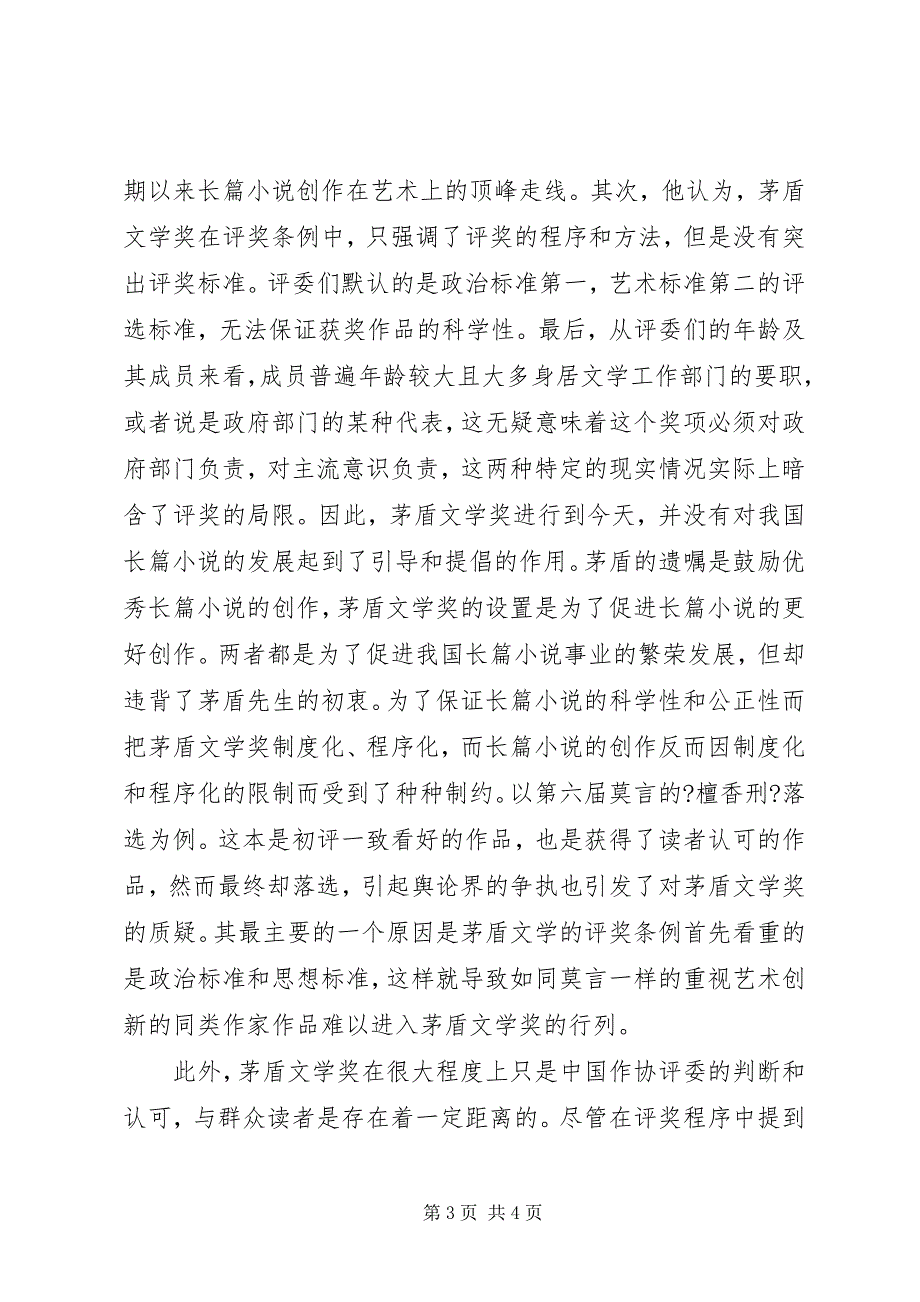 期以来长篇小说创作在艺术上的顶峰走线。其次，他认为，茅盾
文学奖在评奖条例中，只强调了评奖的程序和方法，但是没有突
出评奖标准。评委们默认的是政治标准第一，艺术标准第二的评
选标准，无法保证获奖作品的科学性。最后，从评委们的年龄及
其成员来看，成员普遍年龄较大且大多身居文学工作部门的要职，
或者说是政府部门的某种代表，这无疑意味着这个奖项必须对政
府部门负责，对主流意识负责，这两种特定的现实情况实际上暗
含了评奖的局限。因此，茅盾文学奖进行到今天，并没有对我国
长篇小说的发展起到了引导和提倡的作用。茅盾的遗嘱是鼓励优
秀长篇小说的创作，茅盾文学奖的设置是为了促进长篇小说的更
好创作。两者都是为了促进我国长篇小说事业的繁荣发展，但却
违背了茅盾先生的初衷。为了保证长篇小说的科学性和公正性而
把茅盾文学奖制度化、程序化，而长篇小说的创作反而因制度化
和程序化的限制而受到了种种制约。以第六届莫言的?檀香刑?落
选为例。这本是初评一致看好的作品，也是获得了读者认可的作
品，然而最终却落选，引起舆论界的争执也引发了对茅盾文学奖
的质疑。其最主要的一个原因是茅盾文学的评奖条例首先看重的
是政治标准和思想标准，这样就导致如同莫言一样的重视艺术创
新的同类作家作品难以进入茅盾文学奖的行列。
此外，茅盾文学奖在很大程度上只是中国作协评委的判断和
认可，与群众读者是存在着一定距离的。尽管在评奖程序中提到
第 3 页 共 4 页